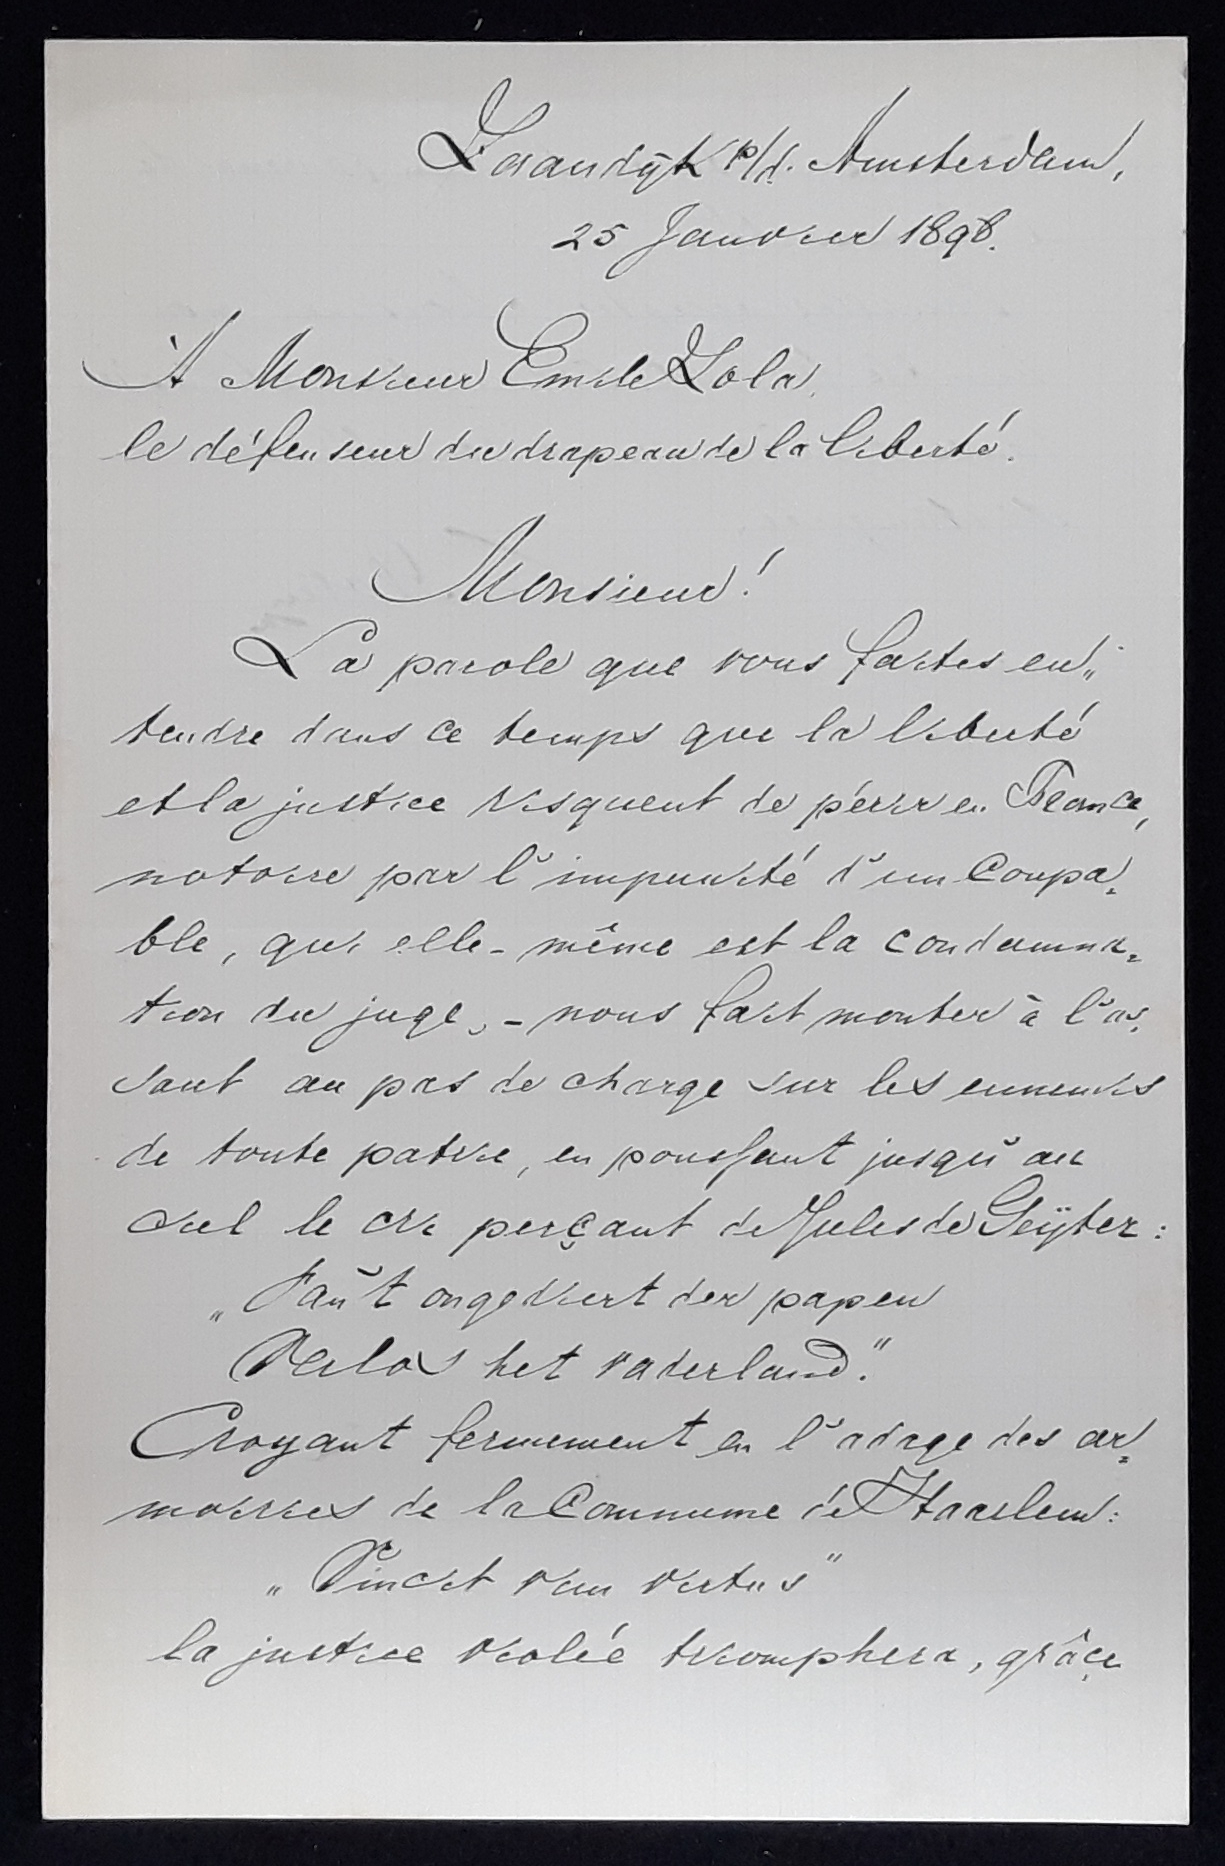 Zaandijk p/d. Amsterdam,
25 Janvier 1898.
A Monsieur Emile Zola,
le défenseur du drapeau de la liberté.
Monsieur!
La parole que vous faites en„
tendre dans ce temps que la liberté
et la justice risquent de périr en France,
notoire par l'impunité d'un coupa„
ble, qui elle-même est la condamna„
tion du juge, - nous fait monter à l'as„
saut au pas de charge sur les ennemis
de toute patrie, en poussant jusqu'au
ciel le cri perçant de Jules de Geÿter:
„ 't ongediert der papen
Verlos het vaderland."
Croyant fermement en l'adage des ar„
moiries de la Commune de Haarlem:
„ Vincit vim virtus "
la justice violée triomphera, grâce